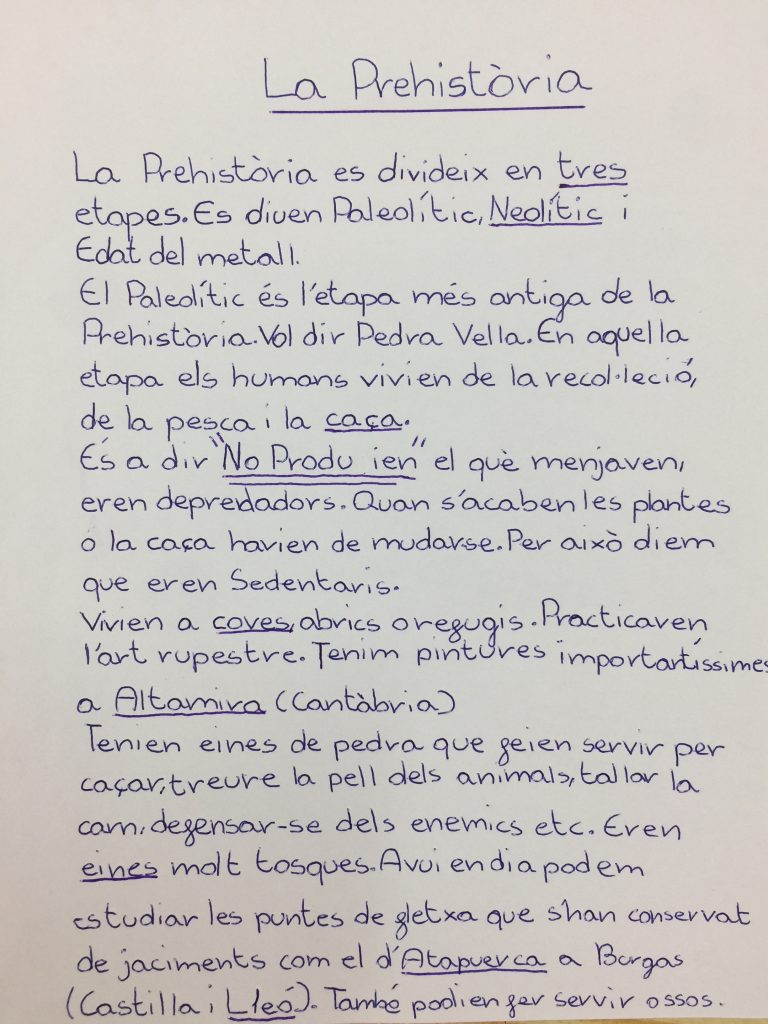 La Prehistòria
La Prehistòria es divideix en tres
etapes. Es diuen Paleolític, Neolític i
Edat del metall.
El Paleolític és l'etapa més antiga de la
Prehistòria. Vol dir Pedra Vella. En aquella
etapa els humans vivien de la recol·leció,
de la pesca i la caça.
És a dir "No Produ ien" el què menjaven,
eren depredadors. Quan s'acaben les plantes
o la caça havien de mudar-se. Per això diem
que eren Sedentaris.
Vivien a coves, abrics o refugis. Practicaven
l'art rupestre. Tenim pintures importantíssimes
a Altamira (Cantàbria)
Tenien eines de pedra que feien servir per
caçar, treure la pell dels animals, tallar la
carn, defensar-se dels enemics etc. Eren
eines molt tosques. Avui en dia podem
estudiar les puntes de fletxa que s'han conservat
de jaciments com el d'Atapuerca a Burgas
(Castilla i Lleó). També podien fer servir ossos.